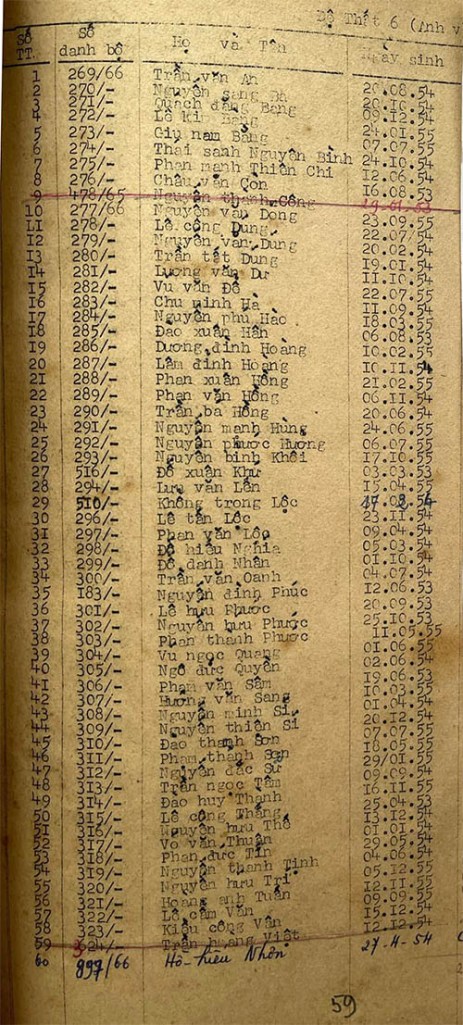 Đệ Thất 6 (Anh v
Số TT. Số danh bộ Họ và Tên Ngày sinh
1 269/66 Trần văn An 20.08.54
2 270/- Nguyễn Bá 20.10.54
3 271/- Quách đăng Bang 09.12.54
4 272/- Lê Bang 24.01.55
5 273/- Giụ nam Bằng 07.07.55
6 274/- Thái sanh Nguyên Bình 24.10.54
7 275/- Phan mạnh Thiên Chi 12.06.54
8 276/- Châu văn Còn 16.08.53
9 478/65 Nguyễn thành Công 19.01.53
10 277/66 Nguyễn văn Dong 23.09.55
11 278/- Lê công Dung 22.07/54
12 279/- Nguyễn văn Dung 20.02.54
13 280/- Trần tất Dung 19.01.54
14 281/- Lương văn Dư 11.10.54
15 282/- Vu văn Đê 22.07.55
16 283/- Chu minh Hà 11.09.54
17 284/- Nguyễn phú Hào 18.03.55
18 285/- Đao xuân Hân 06.08.53
19 286/- Dương đình Hoàng 10.02.55
20 287/- Lâm đình Hoàng 10.11.54
21 288/- Phan xuân Hồng 21.02.55
22 289/- Phan văn Hồng 06.11.54
23 290/- Trần ba Hồng 20.06.54
24 291/- Nguyễn mạnh Hùng 24.06.55
25 292/- Nguyễn phước Hương 06.07.55
26 293/- Nguyễn bình Khôi 17.10.55
27 516/- Đỗ xuân Khư 03.03.53
28 294/- Lưu văn Lên 15.04.55
29 510/- Khổng trong Lộc 17.02.54
30 296/- Lê tấn Lộc 23.11.54
31 297/- Phan văn Lộc 09.04.54
32 298/- Đỗ hiếu Nghĩa 05.03.54
33 299/- Đỗ danh Nhân 01.10.54
34 300/- Trần văn Oanh 04.07.54
35 183/- Nguyễn đình Phúc 12.06.53
36 301/- Lê hưu Phước 20.09.53
37 302/- Nguyễn hưu Phước 25.10.53
38 303/- Phan thanh Phước 11.05.55
39 304/- Vu ngọc Quang 01.06.55
40 305/- Ngô đức Quyền 02.06.54
41 306/- Phạm văn Sâm 19.06.53
42 307/- Hương văn Sang 10.03.55
43 308/- Nguyễn minh Si 01.04.54
44 309/- Nguyễn thiên Si 20.12.54
45 310/- Đao thanh Sơn 07.07.55
46 311/- Phạm thanh Sơn 18.05.55
47 312/- Nguyễn đắc Sư 29/01.55
48 313/- Trần ngọc Tâm 09.09.54
49 314/- Đao huy Thanh 16.11.55
50 315/- Lê công Thăng 25.04.53
51 316/- Nguyễn hưu Thê 13.12.54
52 317/- Vo văn Thuận 01.01.54
53 318/- Phan đức Tín 29.05.54
54 319/- Nguyễn thanh Tịnh 04.06.54
55 320/- Nguyễn hưu Trí 05.12.55
56 321/- Hoang anh Tuấn 12.11.55
57 322/- Lê cẩm Văn 09.09.55
58 323/- Kiều công Văn 15.12.54
59 324/- Trần hoang Việt 12.12.54
60 897/66 Hồ-hiếu Nhơn 27-4-54
59